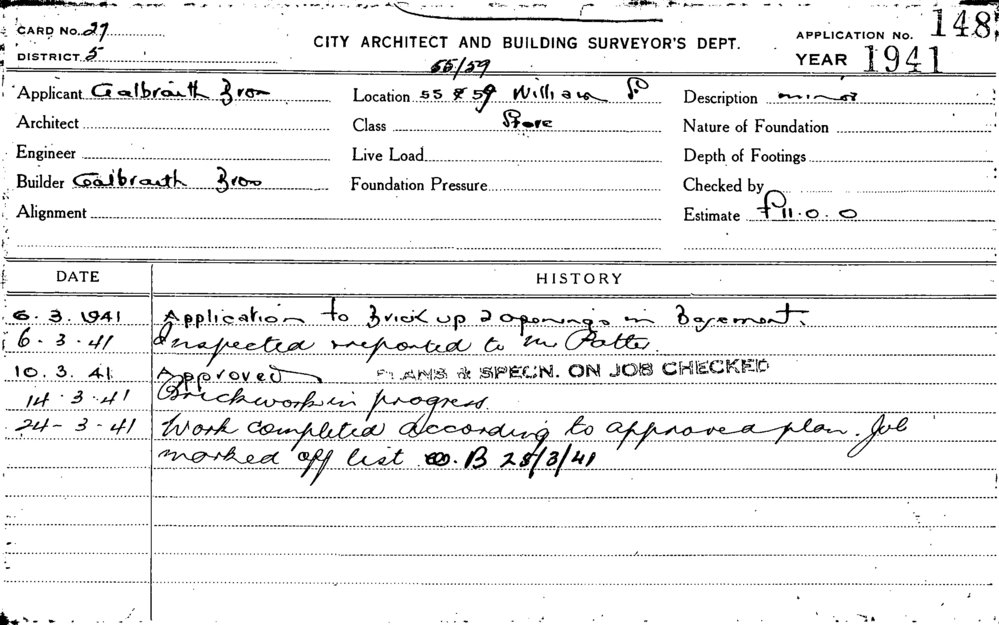 CARD NO. 27
DISTRICT 5
CITY ARCHITECT AND BUILDING SURVEYOR'S DEPT.
APPLICATION NO. 148
YEAR 1941
55/59
Applicant Galbraith Bros
Location 55 & 59 William St
Description minor
Architect
Class Store
Nature of Foundation
Engineer
Live Load
Depth of Footings
Builder Galbraith Bros
Foundation Pressure
Checked by
Alignment
Estimate £11.0.0
DATE HISTORY
6.3.1941 Application to Brick up 2 openings in Basement.
6-3-41 Inspected & reported to Mr
10.3.41 Approved PLANS & SPECN. ON JOB CHECKED
14-3-41 Brickwork in progress.
24-3-41 Work completed according to approved plan. Job
marked off list B 25/3/41